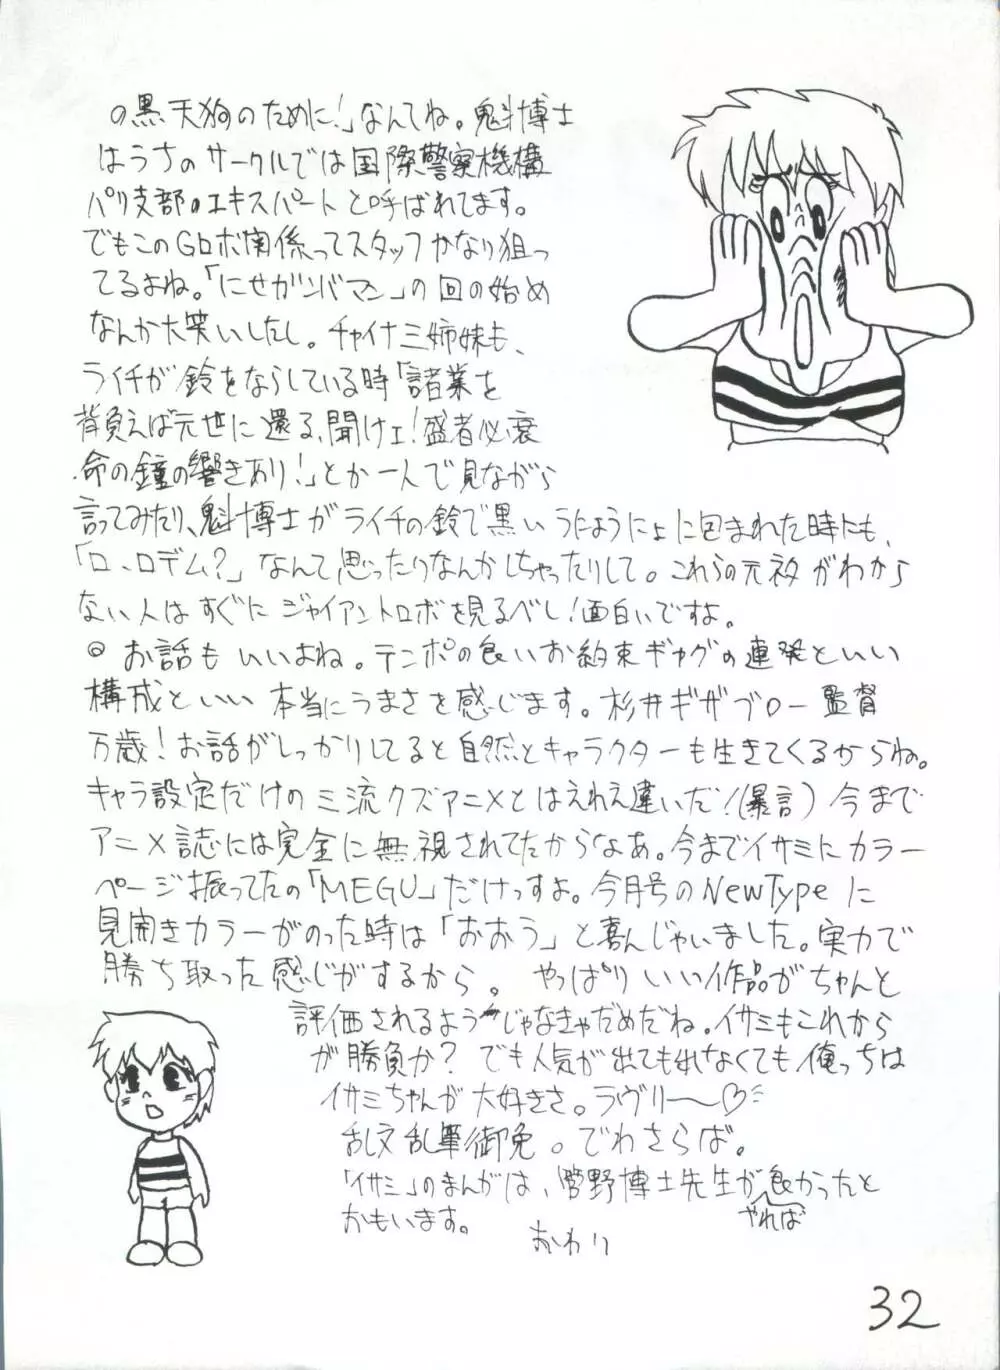 の黒天狗のために!」なんてね。魁博士
はうちのサークルでは国際警察機構
パリ支部のエキスパートと呼ばれてます。
でもこのGロボ関係ってスタッフかなり狙っ
てるよね。「にせガンバマン」の回の始め
なんか大笑いしたし。チャイナ三姉妹も、
ライチが鈴をならしている時「諸業を
背負えば元世に還る、聞けェ!盛者必衰
命の鐘の響きあり!」とか一人で見ながら
言ってみたり、魁博士がライチの鈴で黒いうにょうにょに包まれた時にも、
「ロ、ロデム?」なんて思ったりなんかしちゃったりして。これらの元ネタがわから
ない人はすぐにジャイアントロボを見るべし!面白いですよ。
◎お話もいいよね。テンポの良いお約束ギャグの連発といい
構成といい本当にうまさを感じます。杉井ギサブロー監督
万歳!お話がしっかりしてると自然とキャラクターも生きてくるからね。
キャラ設定だけの三流クズアニメとはえれえ違いだ!(暴言)今まで
アニメ誌には完全に無視されてたからなあ。今までイサミにカラー
ページ振ってたの「MEGU」だけっすよ。今月号のNewTypeに
見開きカラーがのった時は「おおう」と喜んじゃいました。実力で
勝ち取った感じがするから。やっぱりいい作品がちゃんと
評価されるようじゃなきゃだめだね。イサミもこれから
が勝負か?でも人気が出ても出なくても俺っちは
イサミちゃんが大好きさ。ラヴリー〜♡
乱文乱筆御免。でわさらば。
「イサミ」のまんがは、菅野博士先生がやれば良かったと
かもいます。
おわり
32